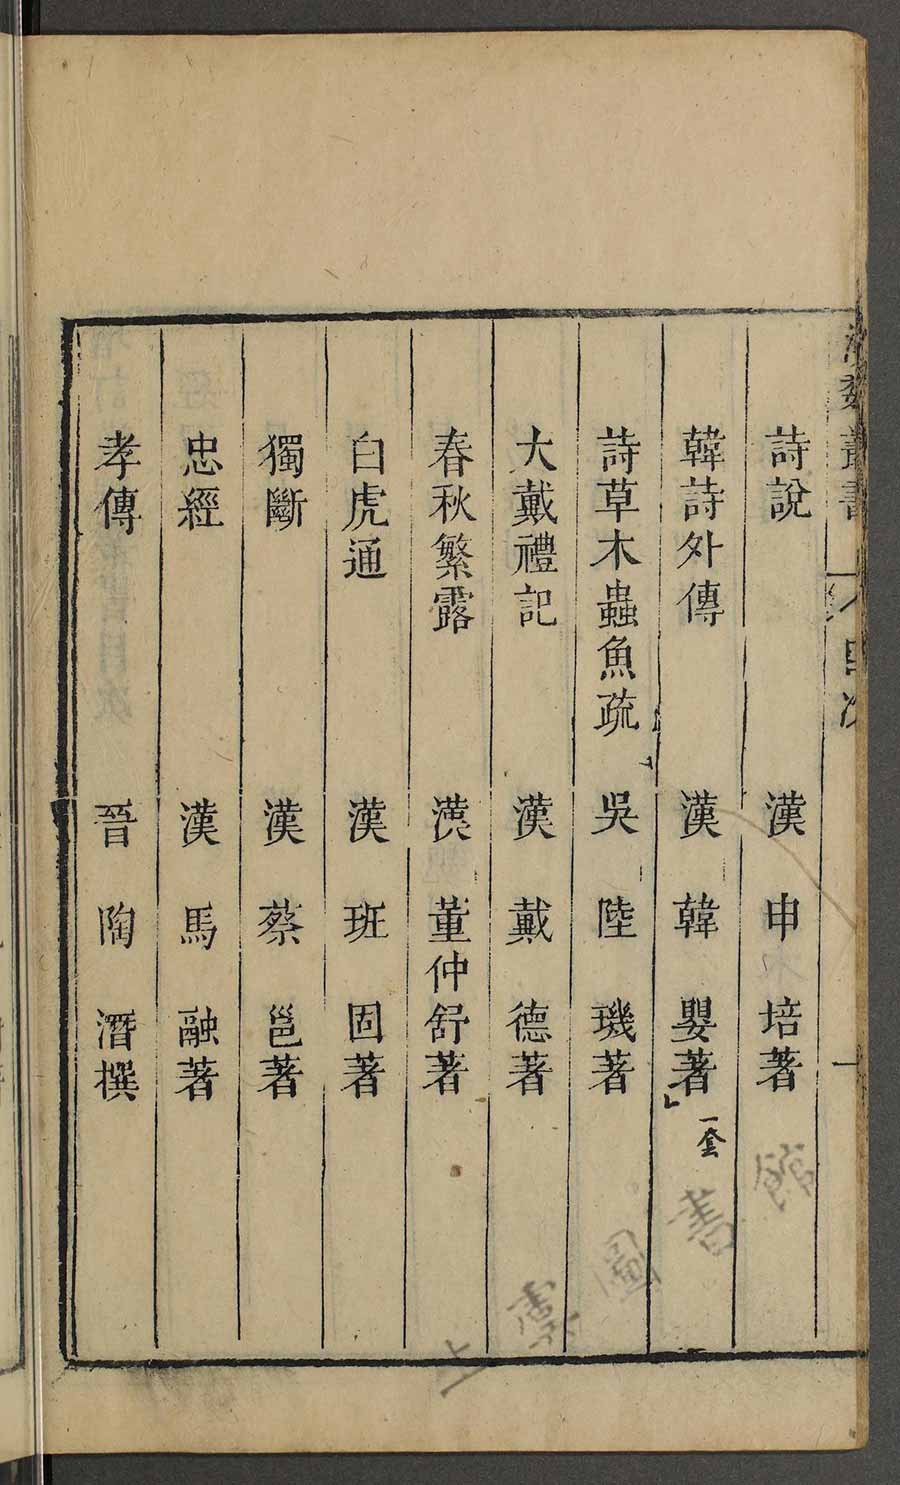 漢魏叢書 目次 一
詩說 漢 申 培著
韓詩外傳 漢 韓 嬰著 一套
詩草木蟲魚疏 吳 陸 璣著
大戴禮記 漢 戴 德著
春秋繁露 漢 董仲舒著
白虎通 漢 班 固著
獨斷 漢 蔡 邕著
忠經 漢 馬 融著
孝傳 晉 陶 潛撰
圖書館